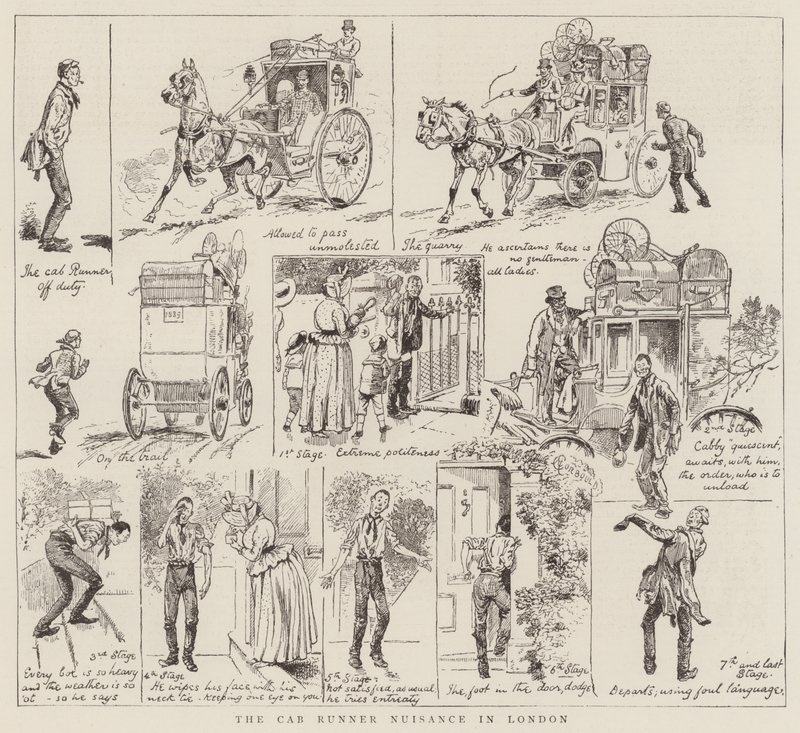 The cab Runner
Off duty.
Allowed to pass
unmolested
The quarry. He ascertains there is
no gentleman -
all ladies.
1889
On the trail
1st Stage. Extreme politeness
2nd Stage
Cabby "quiescent,"
awaits, with him,
the order, who is to
unload
3rd Stage
Every box is so heavy
and the weather is so
'ot - so he says
4th Stage
He wipes his face with his
neck tie - Keeping one eye on you
5th Stage.
Not satisfied, as usual
he tries entreaty
6th Stage
The, foot in the door, dodge
7th and last
Stage.
Departs; using foul language.
THE CAB RUNNER NUISANCE IN LONDON